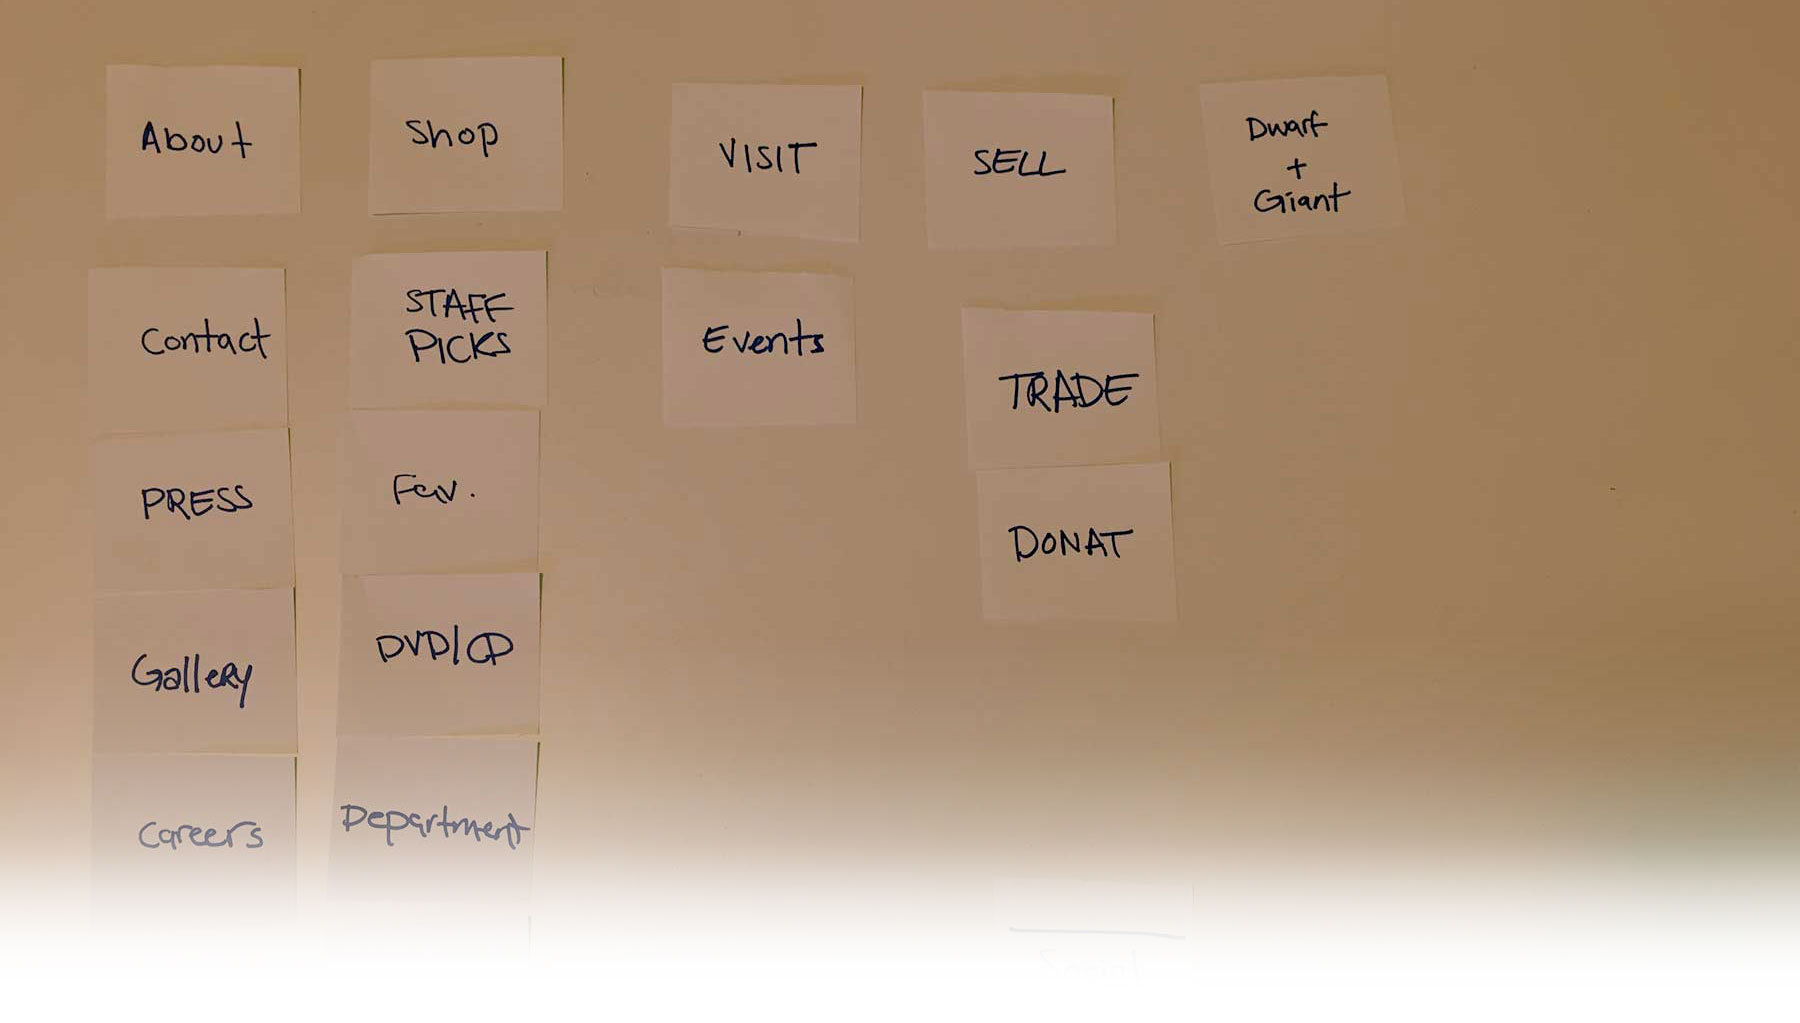 About
Contact
PRESS
Gallery
Careers
Shop
STAFF
PICKS
Fav.
DVD/CD
Department
VISIT
Events
SELL
TRADE
DONAT
Dwarf
+
Giant